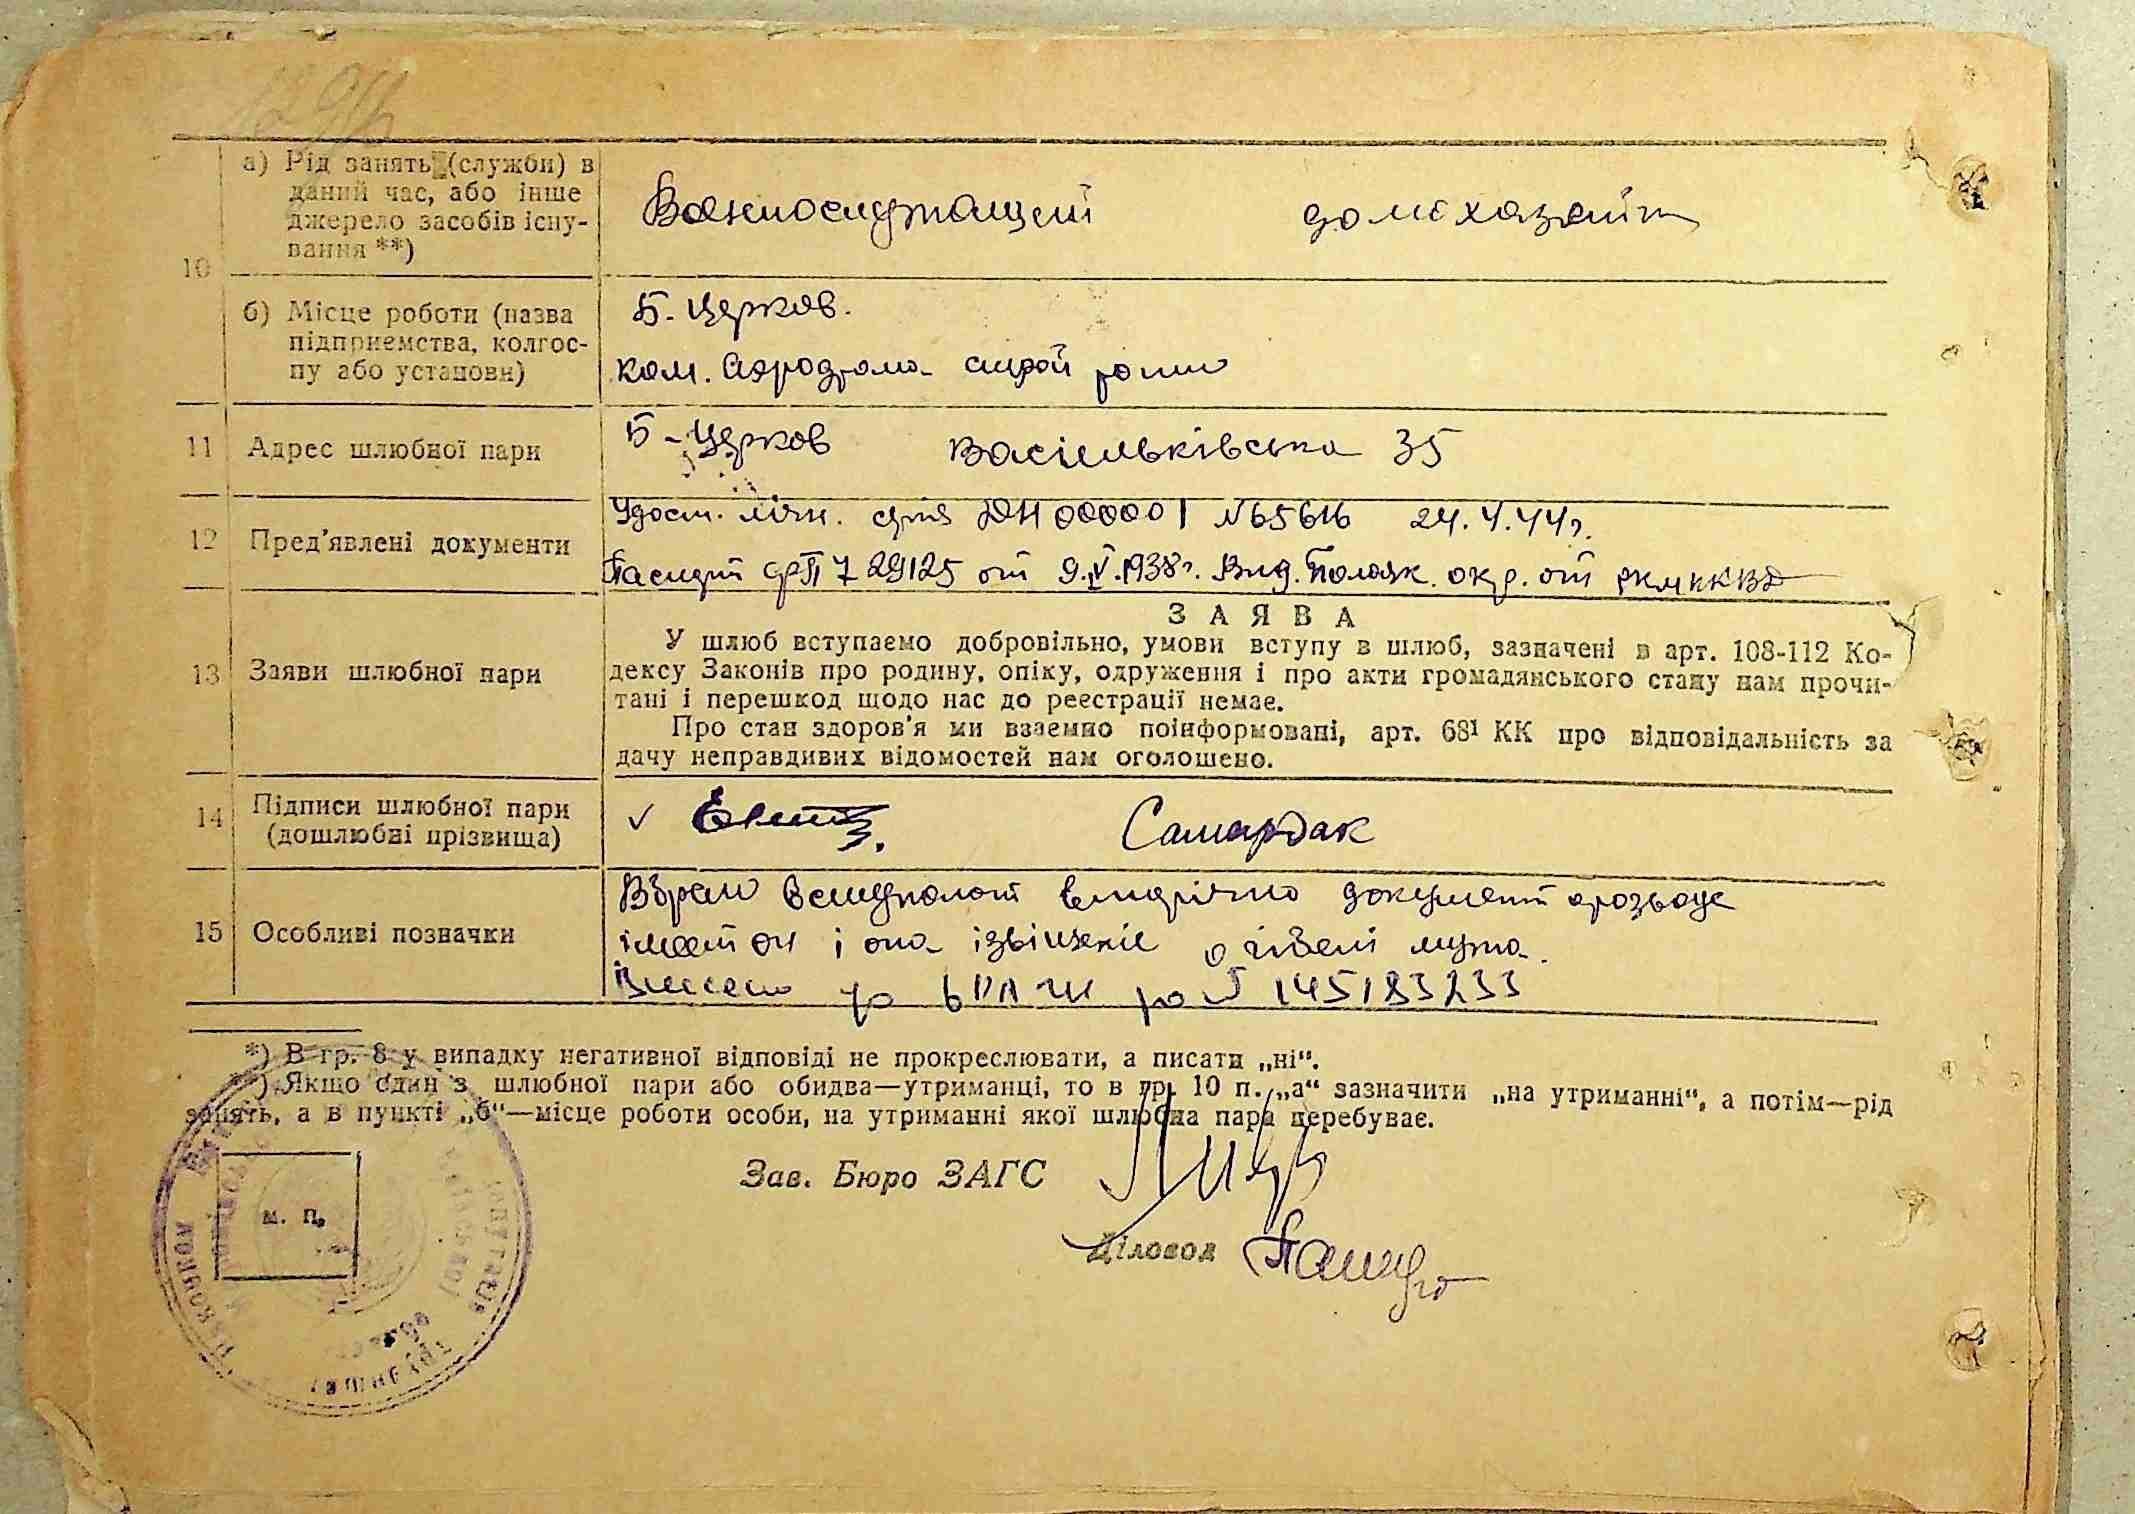 10
а) Рід занять (служби) в
даний час, або інше
джерело засобів існу-
вання **)
Военнослужащий домохазяйк
б) Місце роботи (назва
підприємства, колгос-
пу або установи)
Б. Церков.
ком. Аэродрома
11 Адрес шлюбної пари
Б-Церков Васильківська 35
12 Пред'явлені документи
Удост. лічн. серія ДН 000001 № 65616 24.V.44г.
Паспорт 729125 от 9.V.1938г. Вид. окр. от РКМ НКВД
13 Заяви шлюбної пари
ЗАЯВА
У шлюб вступаємо добровільно, умови вступу в шлюб, зазначені в арт. 108-112 Ко-
дексу Законів про родину, опіку, одруження і про акти громадянського стану нам прочи-
тані і перешкод щодо нас до реєстрації немає.
Про стан здоров'я ми взаємно поінформовані, арт. 68¹ КК про відповідальність за
дачу неправдивих відомостей нам оголошено.
14 Підписи шлюбної пари
(дошлюбні прізвища)
Самардак
15 Особливі позначки
Вбрак вступают вторічно документ о розводе
імеет он і она ізвіщеніе о гібелі мужа.
145183233
*) В гр. 8 у випадку негативної відповіді не прокреслювати, а писати „ні“.
**) Якщо один з шлюбної пари або обидва—утриманці, то в гр. 10 п. „а“ зазначити „на утриманні“, а потім—рід
занять, а в пункті „б“—місце роботи особи, на утриманні якої шлюбна пара перебуває.
м. п.
Зав. Бюро ЗАГС
Діловод